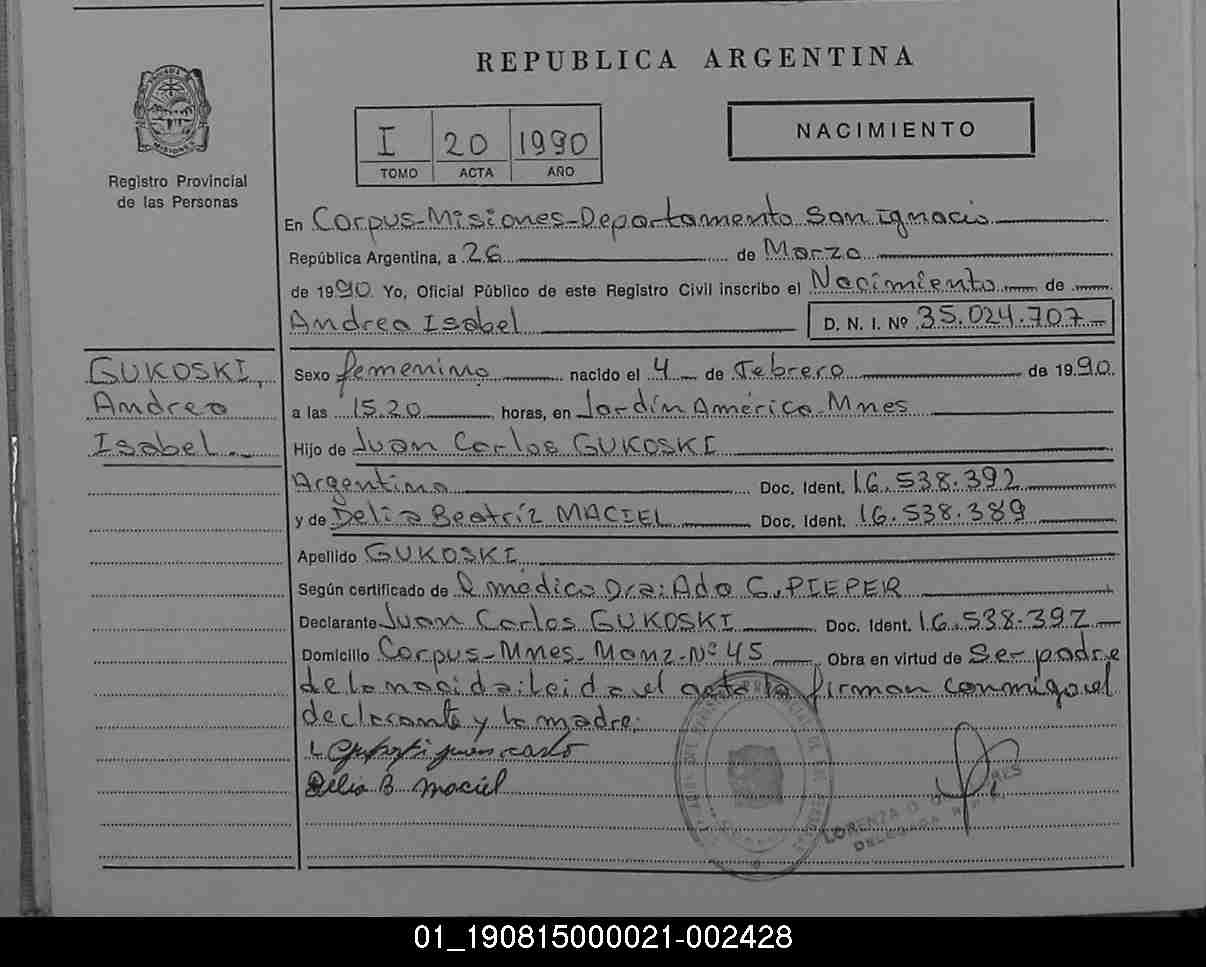 REPUBLICA ARGENTINA
MISIONES
Registro Provincial
de las Personas
I 20 1990
TOMO ACTA AÑO
NACIMIENTO
En Corpus-Misiones-Departamento San Ignacio
República Argentina, a 26 de Marzo
de 1990. Yo, Oficial Público de este Registro Civil inscribo el Nacimiento de
Andrea Isabel D. N. I. Nº 35.024.707
GUKOSKI,
Andrea
Isabel.
Sexo femenino nacido el 4 de Febrero de 1990.
a las 15.20 horas, en Jardín América-Mnes
Hijo de Juan Carlos GUKOSKI
Argentino Doc. Ident. 16.538.392
y de Delia Beatríz MACIEL Doc. Ident. 16.538.389
Apellido GUKOSKI
Según certificado de l médico Dra: Ada C. PIEPER
Declarante Juan Carlos GUKOSKI Doc. Ident. 16.538.392
Domicilio Corpus-Mnes-Manz-Nº 45 Obra en virtud de Ser padre
de la nacida: Leida el acta la firman conmigo el
declarante y la madre;
Delia B. Maciel
LORENZA
DELEGADA
01_190815000021-002428